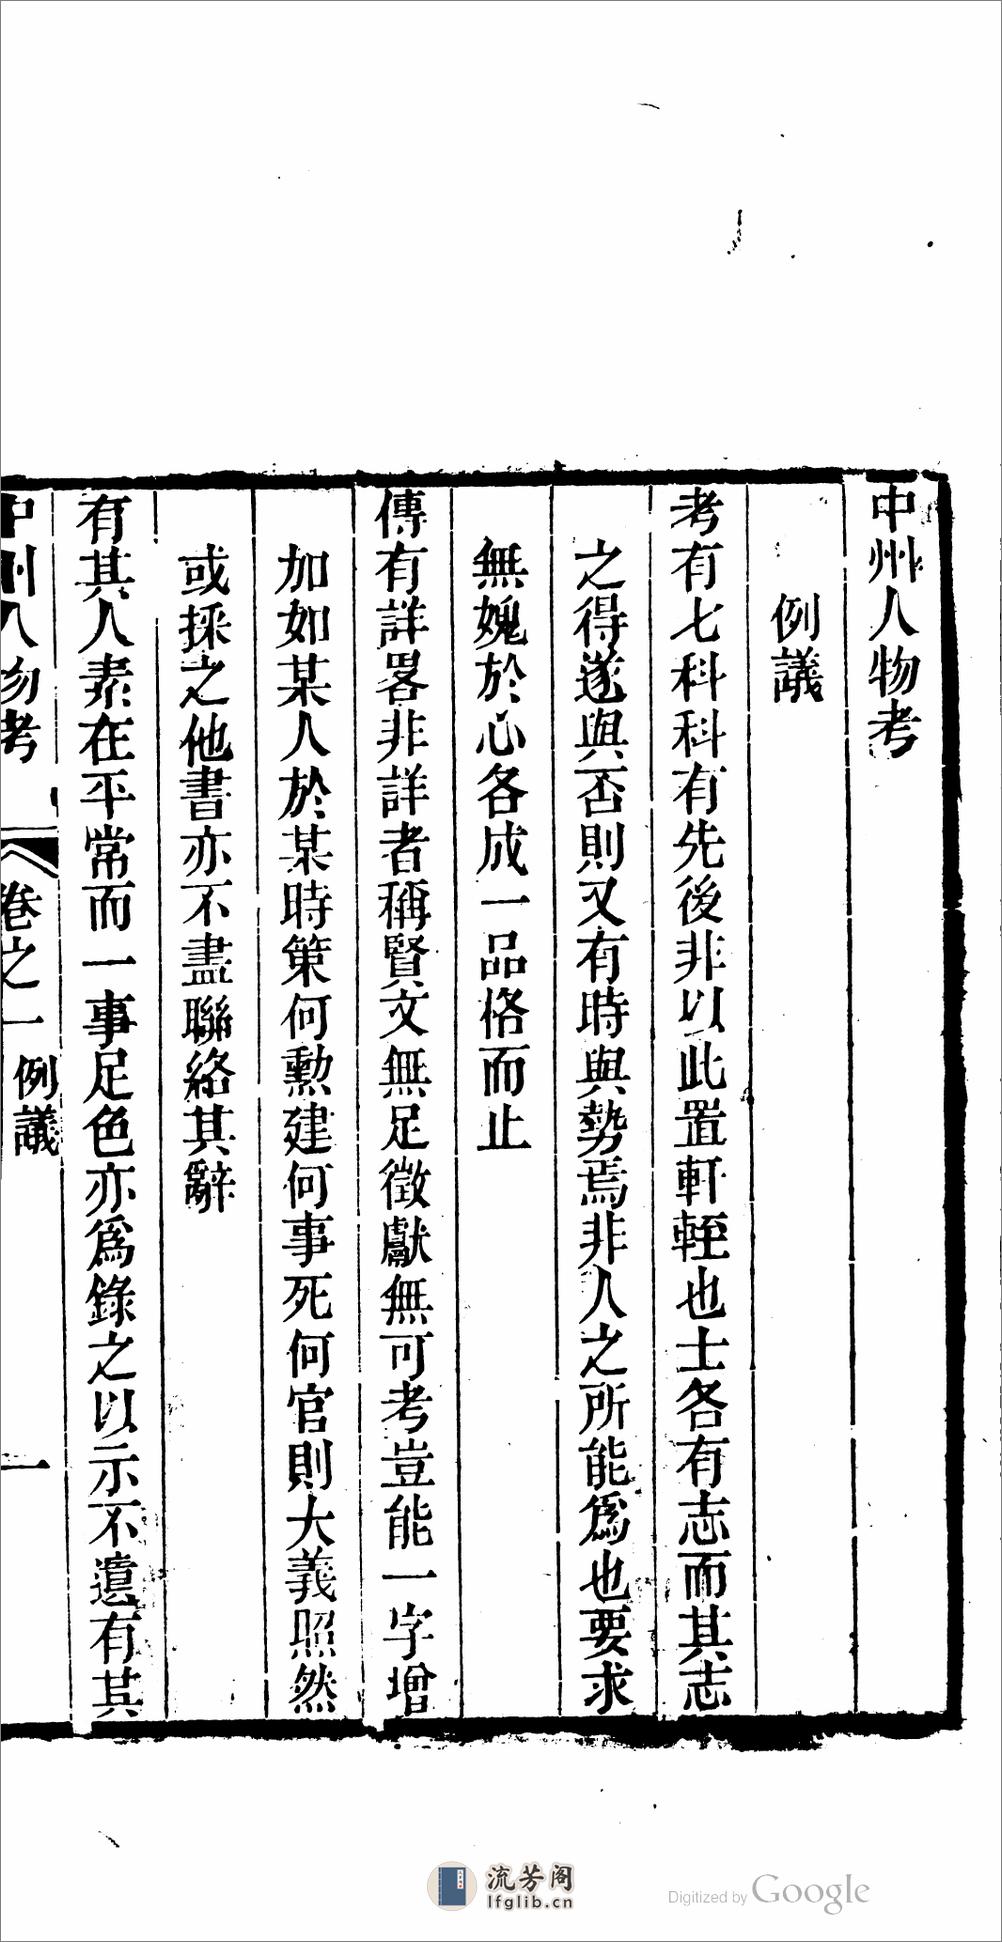 中州人物考
例議
考有七科科有先後非以此置軒輊也士各有志而其志
之得遂與否則又有時與勢焉非人之所能爲也要求
無媿於心各成一品格而止
傳有詳畧非詳者稱賢文無足徵獻無可考豈能一字增
加如某人於某時策何勲建何事死何官則大義照然
或採之他書亦不盡聯絡其辭
有其人素在平常而一事足色亦爲錄之以示不遺有其
中州人物考 卷之一 例議 一
流芳阁
lfglib.cn
Digitized by Google